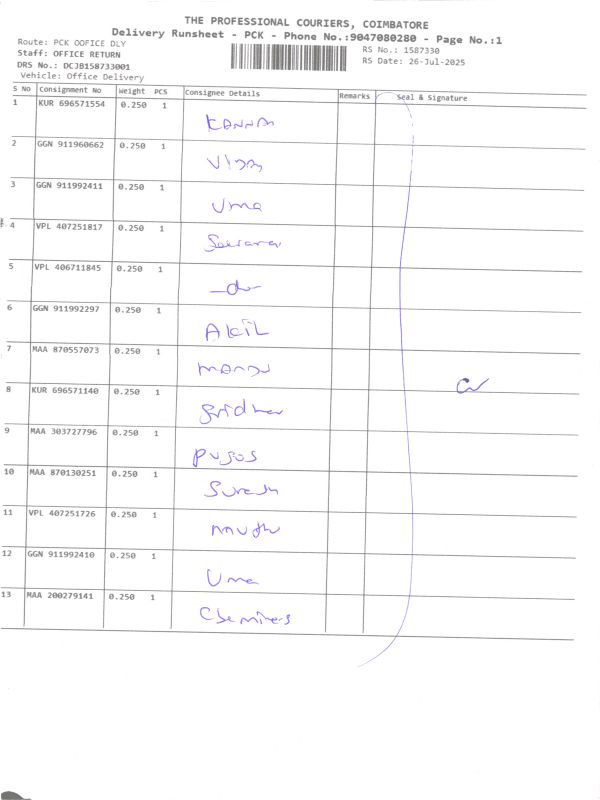 THE PROFESSIONAL COURIERS, COIMBATORE
Delivery Runsheet - PCK - Phone No.:9047080280 - Page No.:1
Route: PCK OOFICE DLY
RS No.: 1587330
Staff: OFFICE RETURN
RS Date: 26-Jul-2025
DRS No.: DCJB158733001
Vehicle: Office Delivery
S No Consignment No Weight PCS Consignee Details Remarks Seal & Signature
1 KUR 696571554 0.250 1 KANNAN
2 GGN 911960662 0.250 1
3 GGN 911992411 0.250 1 Uma
# 4 VPL 407251817 0.250 1
5 VPL 406711845 0.250 1 -do-
6 GGN 911992297 0.250 1 Akil
7 MAA 870557073 0.250 1
8 KUR 696571140 0.250 1 Sridhar
9 MAA 303727796 0.250 1
10 MAA 870130251 0.250 1 Suresh
11 VPL 407251726 0.250 1
12 GGN 911992410 0.250 1 Uma
13 MAA 200279141 0.250 1